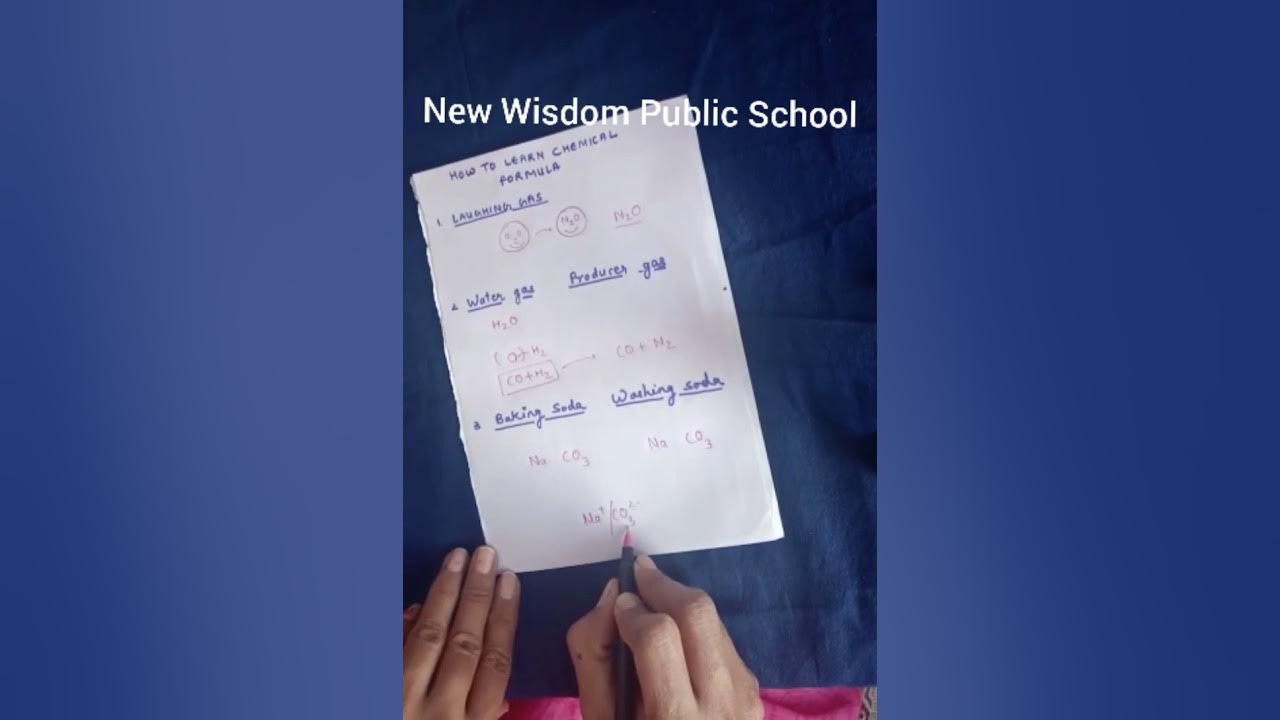 New Wisdom Public School
HOW TO LEARN CHEMICAL
FORMULA
1. LAUGHING GAS
N₂O → N₂O N₂O
2. Water gas Producer gas
H₂O
CO+H₂
CO+H₂ → CO + N₂
3 Baking soda Washing soda
Na CO₃ Na CO₃
Na⁺/CO₃²⁻